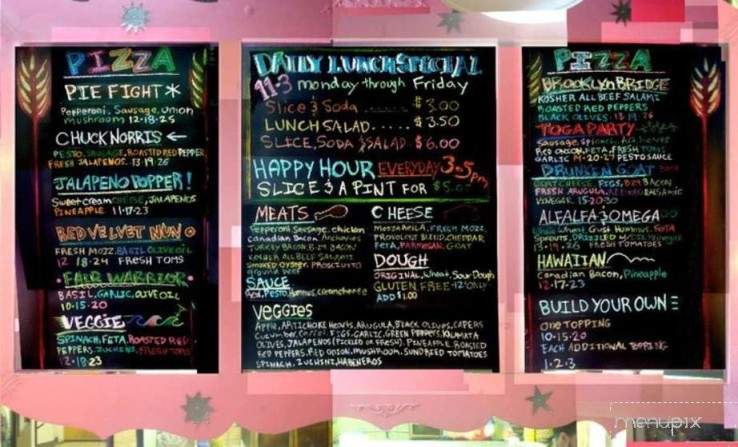 PIZZA
PIE FIGHT
Pepperoni, Sausage, Onion
mushroom 12-18-25
CHUCK NORRIS
PESTO, SAUSAGE, ROASTED RED PEPPER
FRESH JALAPENOS. 13-19-26
JALAPENO POPPER!
Sweet cream CHEESE, JALAPENOS
PINEAPPLE 11-17-23
RED VELVET NUN
FRESH MOZZ. BASIL OLIVE OIL
12 18-24 FRESH TOMS
FAIR WARRIOR
BASIL, GARLIC, OLIVE OIL
10-15-20
VEGGIE
SPINACH, FETA, ROASTED RED
PEPPERS, ZUCHINI, FRESH TOMS
12-18-23
DAILY LUNCH SPECIAL
11-3 monday through Friday
Slice & Soda ........ $3.00
LUNCH SALAD ..... $3.50
SLICE, SODA & SALAD . $6.00
HAPPY HOUR EVERYDAY 3-5pm
SLICE & A PINT FOR
MEATS
Pepperoni, Sausage, chicken
Canadian Bacon, Anchovies
TURKEY BACON
KOSHER ALL BEEF SALAMI
Smoked Oyster, PROSCIUTTO
ground beef
SAUCE
Red, Pesto, Hummus, creamcheese
CHEESE
MOZZARELLA, FRESH MOZZ
PROVOLONE BLEND, CHEDDAR
FETA, PARMESAN, GOAT
DOUGH
ORIGINAL, Wheat, Sour Dough
GLUTEN FREE 12" ONLY
ADD $1.00
VEGGIES
APPLE, ARTICHOKE HEARTS, ARUGULA, BLACK OLIVES, CAPERS
CUCUMBER, FIGS, GARLIC, GREEN PEPPERS, KALAMATA
OLIVES, JALAPENOS (PICKLED OR FRESH), PINEAPPLE, ROASTED
RED PEPPERS, RED ONION, MUSHROOM, SUNDRIED TOMATOES
SPINACH, ZUCHINI, HABENEROS
PIZZA
BROOKLYN BRIDGE
KOSHER ALL BEEF SALAMI
ROASTED RED PEPPERS
BLACK OLIVES 13-19-26
TOGA PARTY
Sausage, Spinach,
Red onion, FETA, FRESH
GARLIC 14-20-27 PESTO SAUCE
DRUNKEN GOAT
GOAT CHEESE, FIGS, BACON
FRESH ARUGULA, BALSAMIC
VINEGAR 15-20-30
ALFALFA & OMEGA
Whole Wheat Crust, Hummus, FETA
Sprouts, DRIZZLED
FRESH TOMATOES
HAWAIIAN
Canadian Bacon, Pineapple
12-17-23
BUILD YOUR OWN
ONE TOPPING
10-15-20
EACH ADDITIONAL TOPPING
1-2-3
menupix